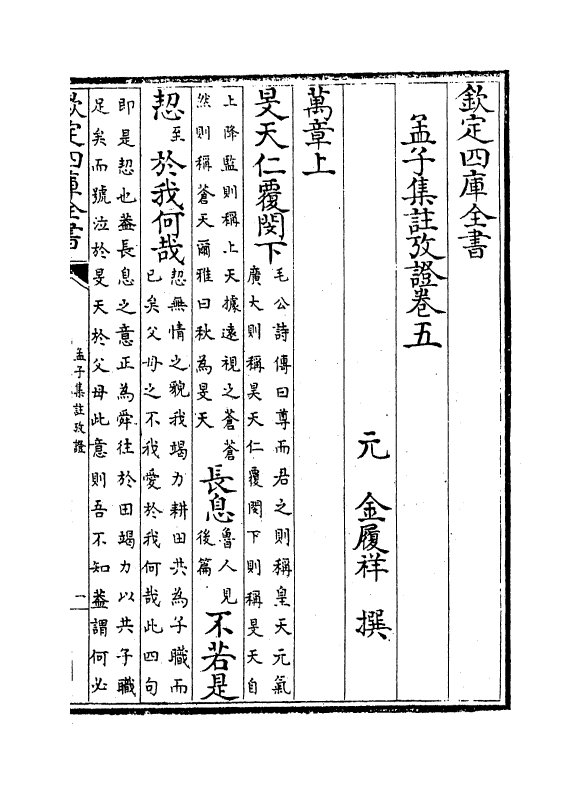 欽定四庫全書
孟子集註攷證卷五
元 金履祥 撰
萬章上
旻天仁覆閔下
毛公詩傳曰尊而君之則稱皇天元氣
廣大則稱昊天仁覆閔下則稱旻天自
上降監則稱上天據遠視之蒼蒼
然則稱蒼天爾雅曰秋為旻天
長息
魯人見
後篇
不若是
恝至於我何哉
恝無情之貌我竭力耕田共為子職而
已矣父母之不我愛於我何哉此四句
即是恝也葢長息之意正為舜往於田竭力以共子職
足矣而號泣於旻天於父母此意則吾不知葢謂何必
欽定四庫全書
孟子集註攷證
一